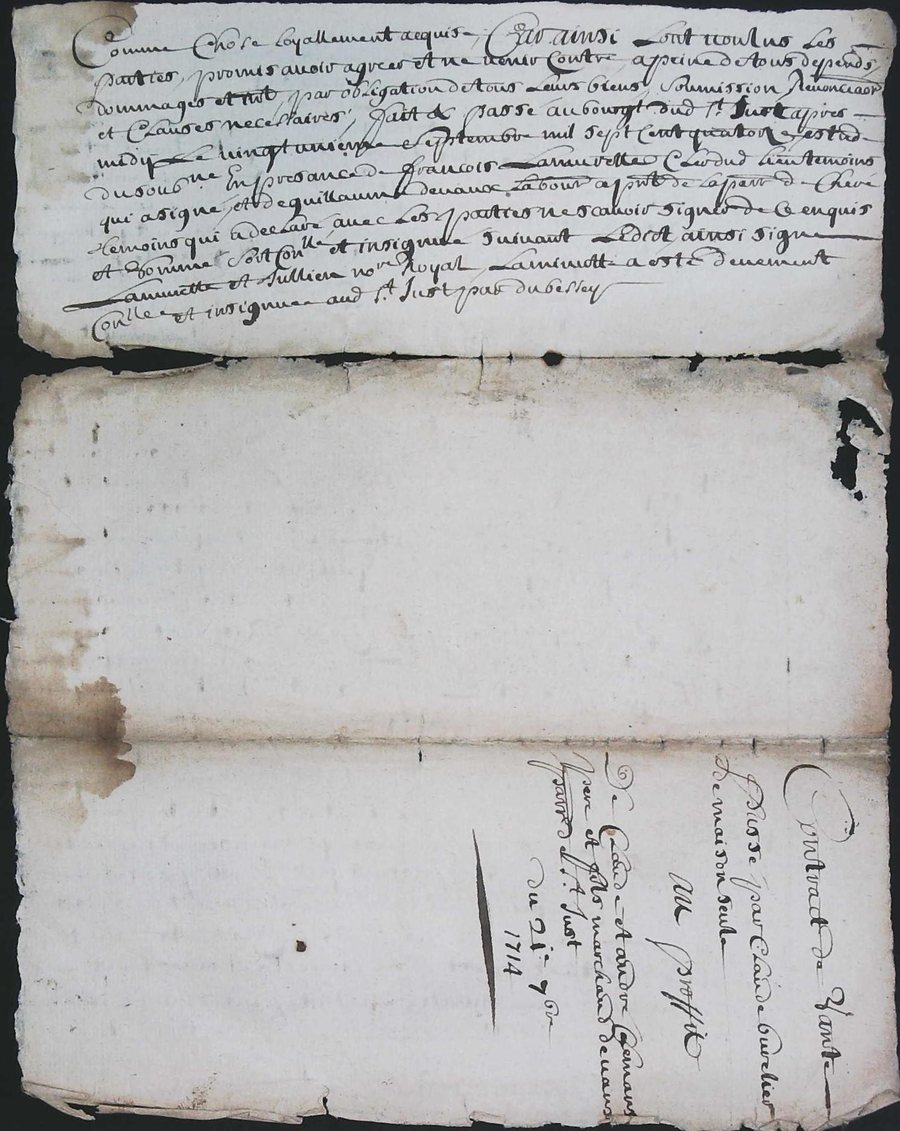 Comme Chose loyallement acquise, Car ainsi Lont voulus Les
parties, promis avoir agreer et ne venir Contre a peine de tous depends
dommages et int par obligation de tous Leurs biens, Soumission Renonciaon
et Clauses necessaires, fait & passe au bourgt dud st Just apres
midy Le vingt unieme Septembre mil sept Cent quatorze estud
du sousne En presance de françois Lamurette Clerdud lieu temoins
qui a signe, et de guillaume devaux La bour a prt de La parr de Cheré
temoins qui a declare avec Les parties ne scavoir signer de Ce enquis
et Somme Conlle et insignue suivant Ledict ainsi signe
Lamurette et Jullien nore Royal, La minutte a este devement
Conllee et insignuee aud st Just par dubessey
Contract de Vante
passe par Claude burelier
de maison seule
au proffit
De Claude et andre Chemans
pere et fils marchand de vaux
parre de st Just
du 21e 7bre
1714